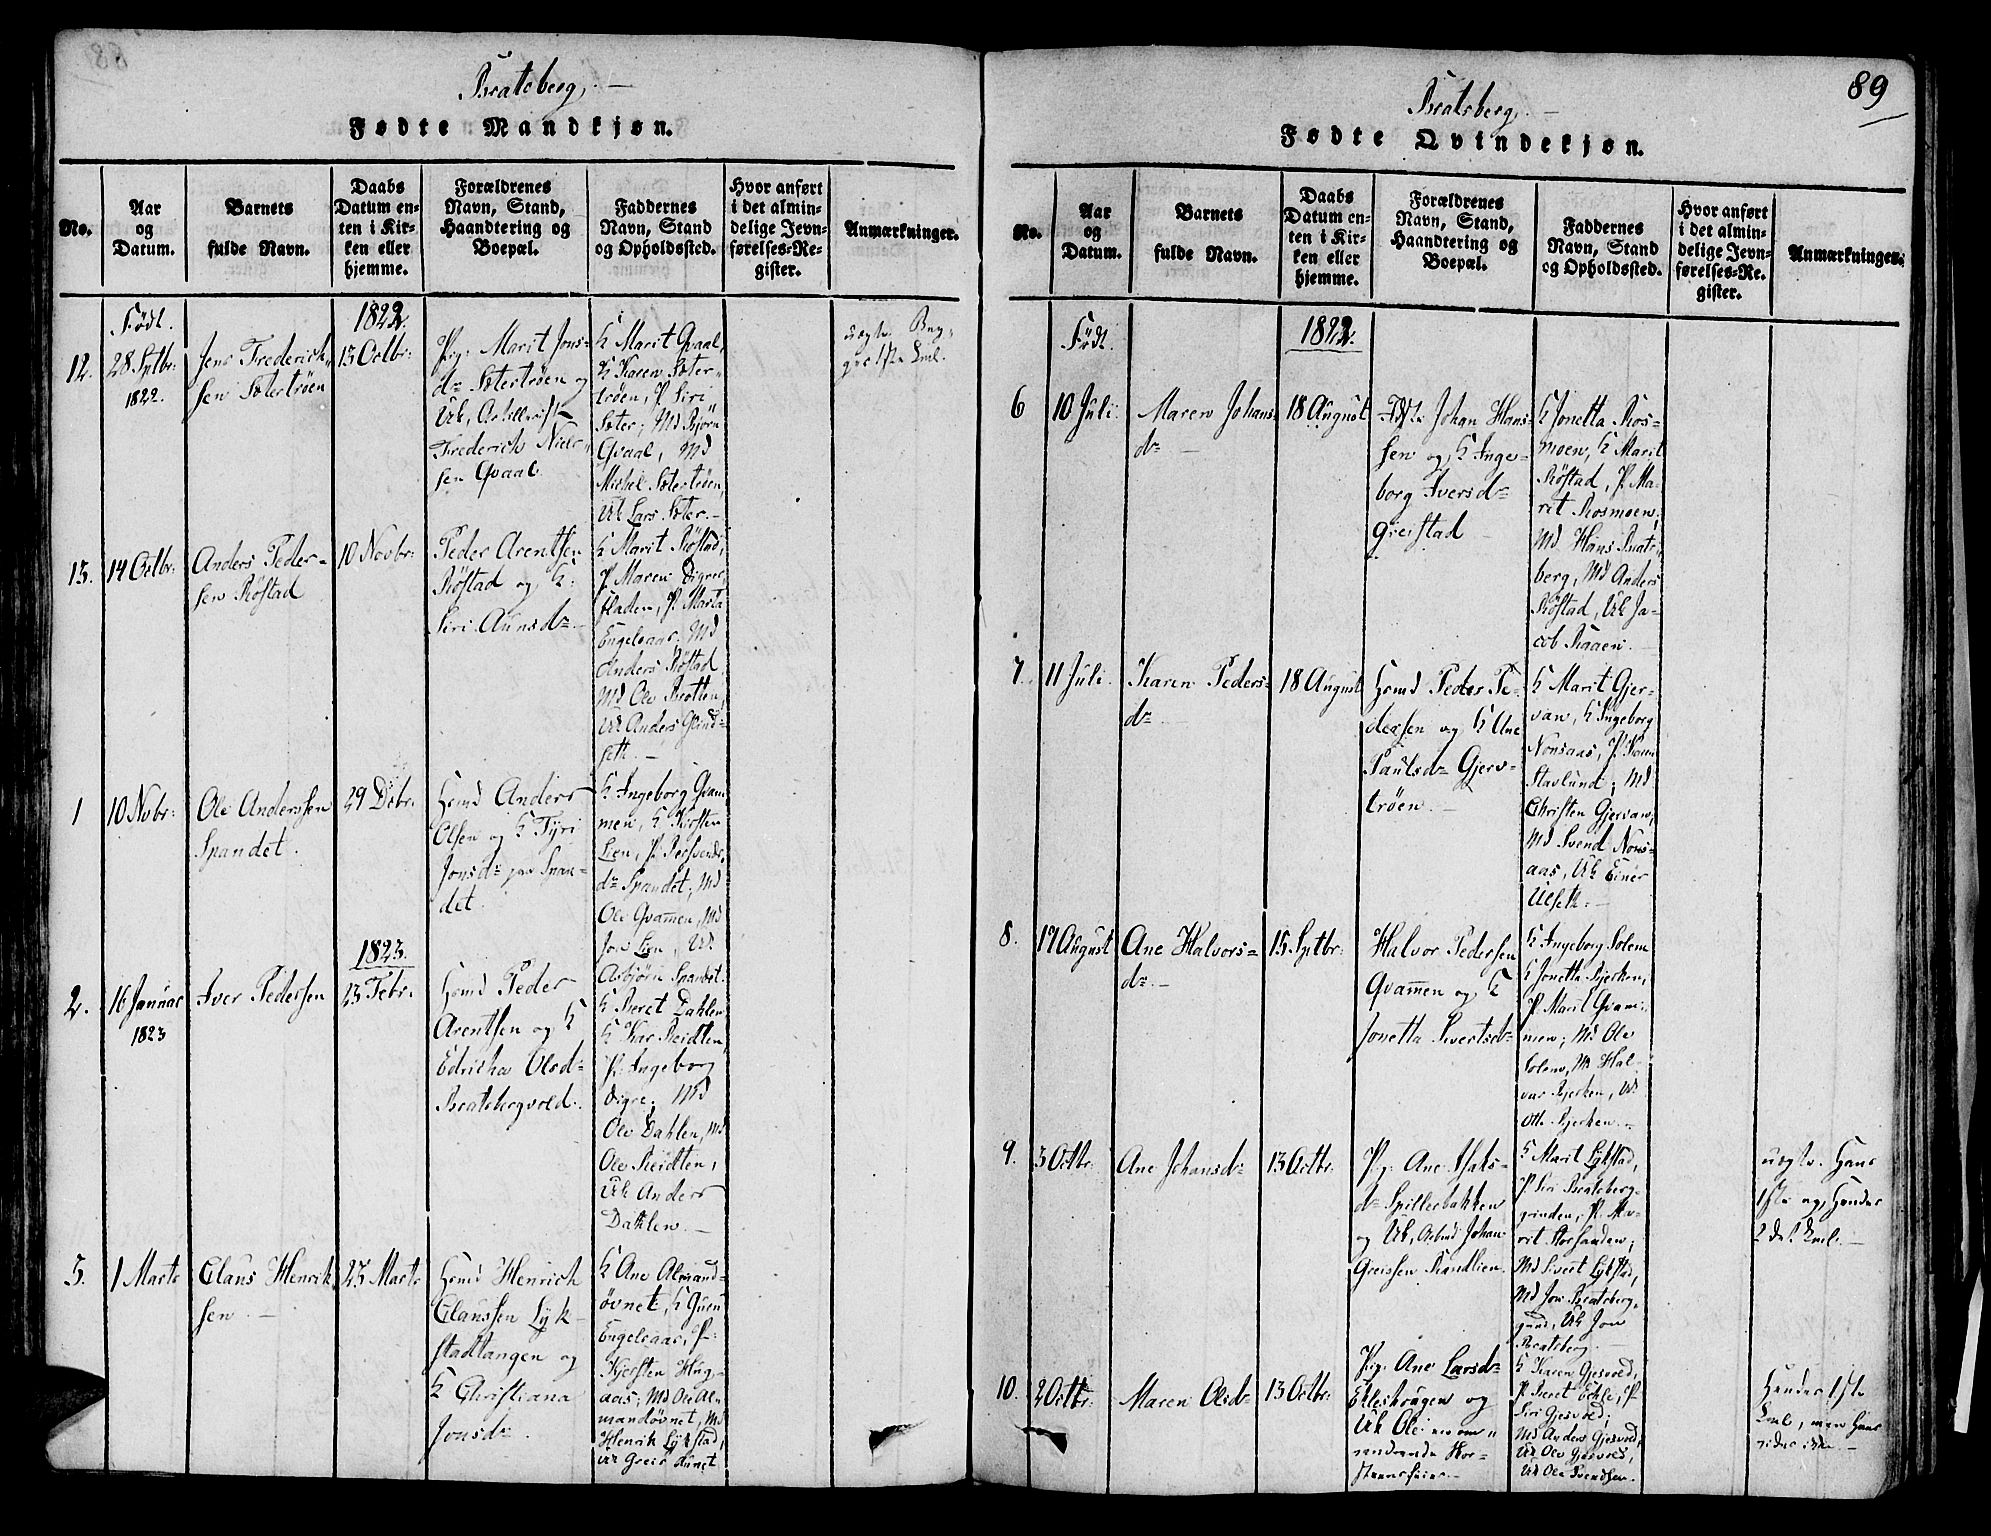 Bratsberg.
Fødte Mandkjøn.
No.
Aar
og
Datum.
Barnets
fulde Navn.
Daabs
Datum en-
ten i Kir-
ken eller
hjemme.
Forældrenes
Navn, Stand,
Haandtering og
Boepæl.
Faddernes
Navn, Stand
og Opholdssted.
Hvor anført
i det almin-
delige Jevn-
førelses-Re-
gister.
Anmærkninger.
Født.
1822.
12.
28 Sptbr:
1822.
Jens Frederich-
sen Sætertrøen
13 Octbr:
Pig: Marit Jons-
dr Sætertrøen og
Uk, Artillerist
Frederich Niel-
sen Qvaal.
K Marit Qvaal,
K Karen Sæter-
trøen, P. Siri
Sæter; Md Bjørn
Qvaal, Md
Michel Sætertrøen,
Uk Lars Sæter.
uægte. Beg-
ges 1ste Leil.
13.
14 Octbr:
Anders Peder-
sen Røstad
10 Novbr:
Peder Arentsen
Røstad og K:
Siri Aunsdr.
K Marit Røstad,
P. Maren Digre
Sladen, P. Marta
Engelsaas. Md
Anders Røstad
Md Ole Bratten,
Uk Anders Qvind-
seth.
1
10 Novbr:
Ole Anderssen
Spandet.
29 Debr.
Hmd Anders
Olsen og K Tyri
Jonsdr paa Span-
det.
K Ingeborg Qvam-
men, K Kirsten
Lien, P. Bersvends-
dr Spandet; Md
Ole Qvamen, Md
Jon Lien, Uk
Asbjørn Spandet.
1823.
2.
16 Januar
1823
Iver Pedersen
23 Febr.
Hmd Peder
Arentsen og K
Edricka Olsdr
Bratsbergvold.
K Beret Dahlen
K Kar Reidten,
P. Ingeborg
Digre; Md
Ole Dahlen, Md
Ole Reidten,
Uk Anders
Dahlen.
3.
1 Marts
Claus Henrik-
sen.
23 Marts
Hmd Henrich
Claussen Lyk-
stadtangen og
K Christiana
Jonsdr.
K Ane Almand-
øvnet, K Guru
Engelsaas, P:
Kjersten Hug-
aas; Md Ole Al-
mandøvnet, Md
Henrik Lykstad,
Uk Greis
89
Bratsberg.
Fødte Qvindekjøn.
No.
Aar
og
Datum.
Barnets
fulde Navn.
Daabs
Datum en-
ten i Kir-
ken eller
hjemme.
Forældrenes
Navn, Stand,
Haandtering og
Boepæl.
Faddernes
Navn, Stand
og Opholdssted.
Hvor anført
i det almin-
delige Jevn-
førelses-Re-
gister.
Anmærkninger.
Født.
1822.
6
10 Juli.
Maren Johans-
dr
18 August
Johan Hans-
sen og K Inge-
borg Iversdr
Greistad
K Jonetta Ros-
moen, K Marit
Røstad, P. Ma-
rit Rosmoen,
Md Hans Brats-
berg, Md Anders
Røstad, Uk Ja-
cob Raaen.
7.
11 Juli.
Karen Peders-
dr
18 August
Hmd Peder Pe-
dersen og K Ane
Paulsdr Gjerv-
trøen.
K Marit Gjer-
van, K Ingeborg
Nonsaas, P. Karen
Stavlund; Md
Christen Gjervan,
Md Svend Nons-
aas, Uk Einer
Ulseth.
8.
17 August
Ane Halvors-
dr.
15 Sptbr:
Halvor Pedersen
Qvamen og K
Jonetta Sivertsdr
K Ingeborg Solem
K Jonetta Bjerken,
P. Marit Qvam-
men; Md Ole
Solem, Md Hal-
var Bjerken, Uk
Otte Bjerken.
9.
3 Octbr.
Ane Johansdr
13 Octbr.
Pg: Ane Isaks-
dr Spillerbakken
og Uk, Arbmd Johan
Greissen Randlien.
K Marit Lykstad,
P. Siri Bratsberg-
grinden, P. Ma-
rit Storsanden;
Md Sivert Lykstad,
Md Jon Bratsberg-
grind, Uk Jon
Bratsberg.
uægte. Hans
1ste og Hendes
2det Leil.
10.
2 Octbr.
Maren Olsdr
13 Octbr.
Pig: Ane Larsdr
Ekleshaugen og
Uk Ole en om-
vandrende Skor-
steensfeier.
K Karen Gjesvold,
P. Beret Ekle, P.
Siri Gjesvold;
Md Anders Gjesvold,
Uk Ole Gjesvold,
Uk Ole Svendsen.
Hendes 1ste
Leil, men Hans
vides ikke